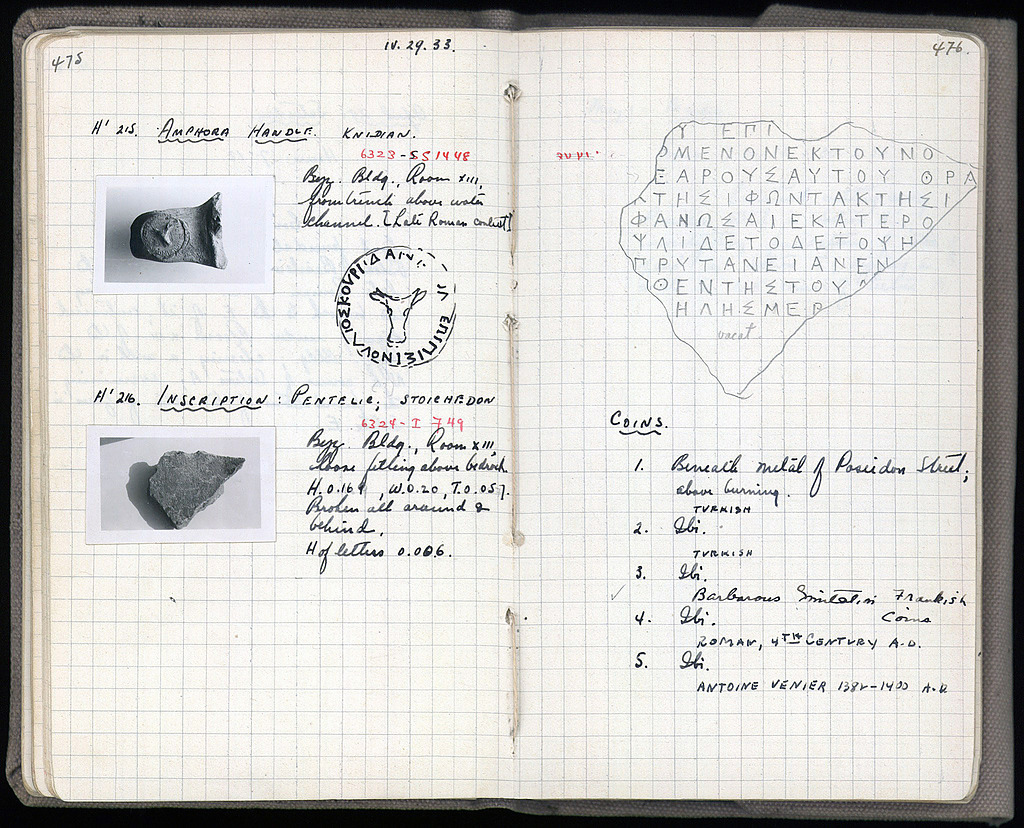 475
IV. 29. 33.
H' 215. AMPHORA HANDLE. KNIDIAN.
6323-SS 1448
Byz. Bldg., Room XIII,
from trench above water
channel. [Late Roman context]
ΕΠΙΠΙΣΙΝΩΛΙΟΣΚΟΥΡΙΔΑ
H' 216. INSCRIPTION: PENTELIC; STOICHEDON
6324-I 749
Byz. Bldg., Room XIII,
loose filling above bedrock
H. 0.169, W. 0.20, T. 0.057.
Broken all around &
behind.
H of letters 0.006.
476.
Υ ΕΠΙ
ΟΜΕΝΟΝΕΚΤΟΥΝΟ
ΕΑΡΟΥΣΑΥΤΟΥ ΘΡΑ
ΚΤΗΣΙΦΩΝΤΑΚΤΗΣΙ
ΦΑΝΩΣΑΙΕΚΑΤΕΡΟ
ΥΛΙΔΕΤΟΔΕΤΟΥΗ
ΠΡΥΤΑΝΕΙΑΝΕΝ
ΘΕΝΤΗΣΤΟΥΛ
ΗΛΗΣΜΕΡ
vacat.
COINS.
1. Beneath metal of Poseidon Street;
above burning.
TURKISH
2. Ibi.
TURKISH
3. Ibi.
Barbarous Imitation Frankish
Coins
4. Ibi.
ROMAN, 4TH CENTURY A.D.
5. Ibi.
ANTOINE VENIER 1382-1400 A.D